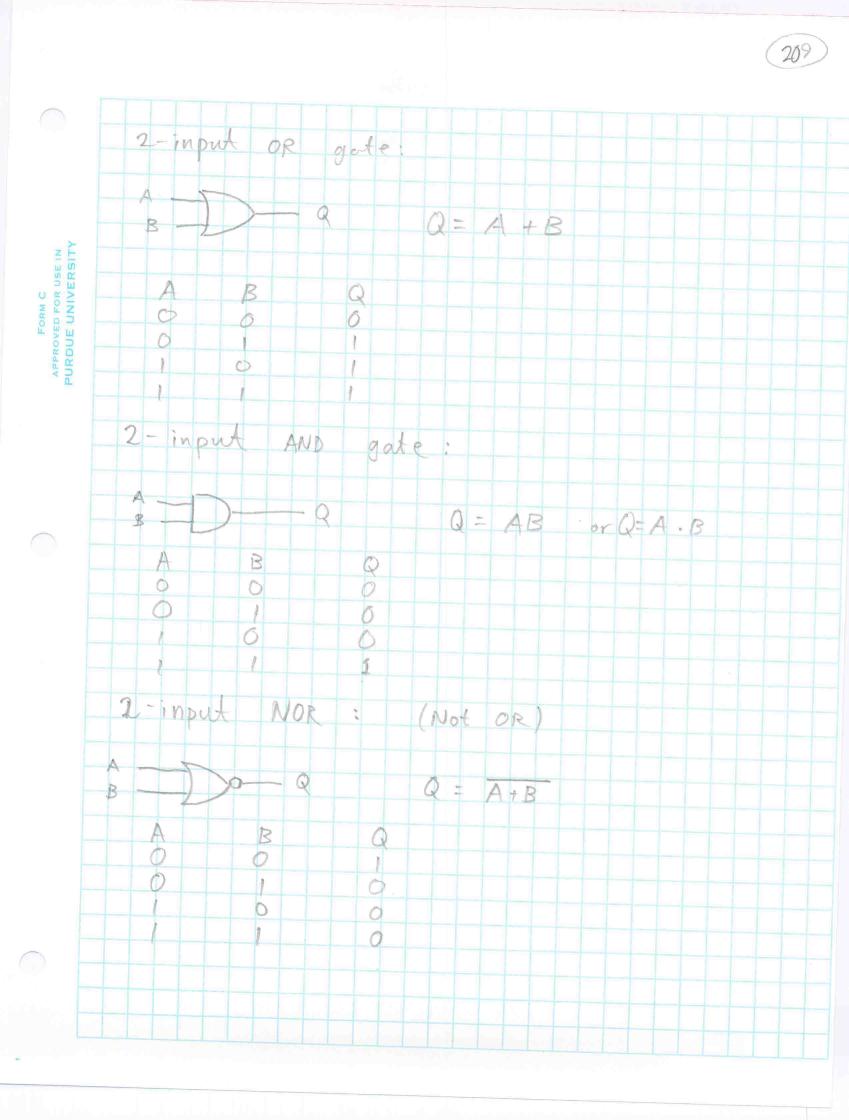 209
FORM C
APPROVED FOR USE IN
PURDUE UNIVERSITY
2-input OR gate:
A
B
Q
Q = A + B
A B Q
0 0 0
0 1 1
1 0 1
1 1 1
2-input AND gate:
A
B
Q
Q = AB or Q=A·B
A B Q
0 0 0
0 1 0
1 0 0
1 1 1
2-input NOR : (Not OR)
A
B
Q
Q = \overline{A+B}
A B Q
0 0 1
0 1 0
1 0 0
1 1 0